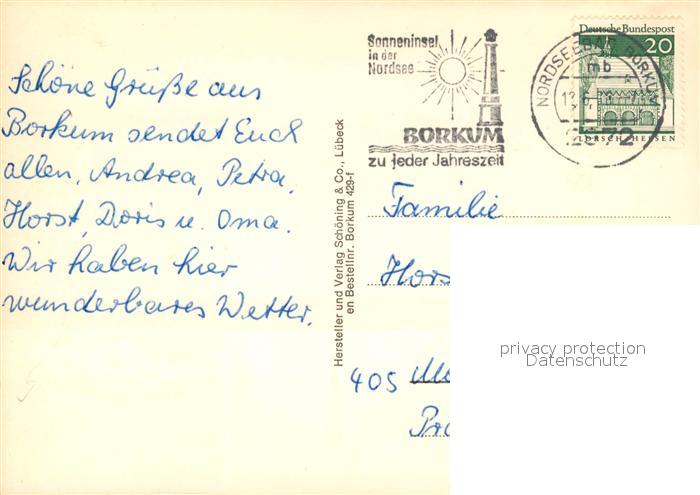 Schöne Grüße aus
Borkum sendet Euch
allen, Andrea, Petra,
Horst, Doris u. Oma.
Wir haben hier
wunderbares Wetter.
Hersteller und Verlag Schöning & Co., Lübeck
en Bestellnr. Borkum 429-f
Sonneninsel
in der
Nordsee
BORKUM
zu jeder Jahreszeit
NORDSEEBAD BORKUM
mb
2972
Deutsche Bundespost
20
LORSCH/HESSEN
Familie
Hors
405
privacy protection
Datenschutz